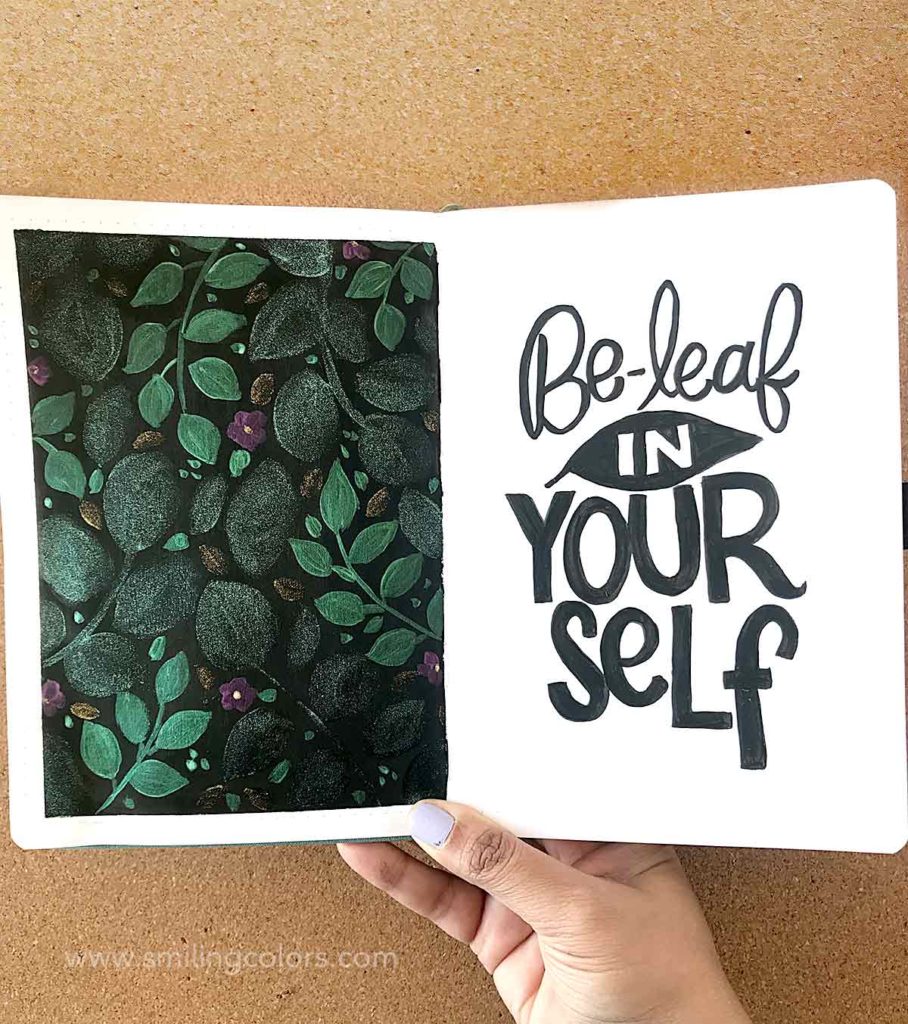 Be-leaf
IN
YOUR
SELF
www.smilingcolors.com